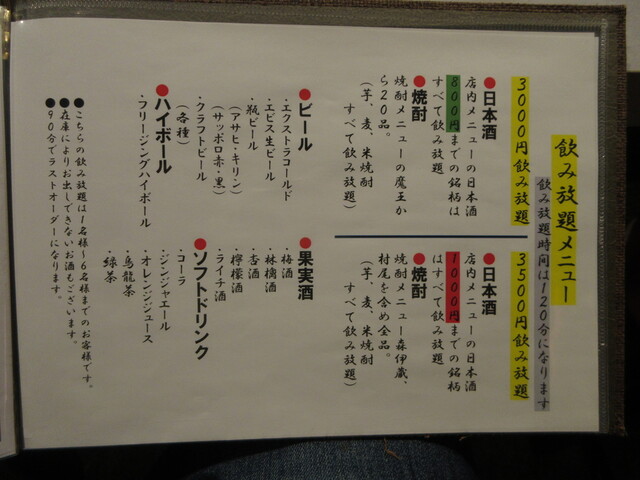 飲み放題メニュー
飲み放題時間は120分になります
3000円飲み放題
●日本酒
店内メニューの日本酒
800円までの銘柄は
すべて飲み放題
●焼酎
焼酎メニューの魔王か
ら20品。
(芋、麦、米焼酎
すべて飲み放題)
3500円飲み放題
●日本酒
店内メニューの日本酒
1000円までの銘柄
はすべて飲み放題
●焼酎
焼酎メニュー森伊蔵、
村尾を含め全品。
(芋、麦、米焼酎
すべて飲み放題)
●ビール
・エクストラコールド
・エビス生ビール
・瓶ビール
(アサヒ・キリン)
(サッポロ赤・黒)
・クラフトビール
(各種)
●ハイボール
・フリージングハイボール
●果実酒
・梅酒
・林檎酒
・杏酒
・檸檬酒
・ライチ酒
●ソフトドリンク
・コーラ
・ジンジャエール
・オレンジジュース
・烏龍茶
・緑茶
●こちらの飲み放題は1名様~6名様までのお客様です。
●在庫によりお出しできないお酒もございます。
●90分でラストオーダーになります。